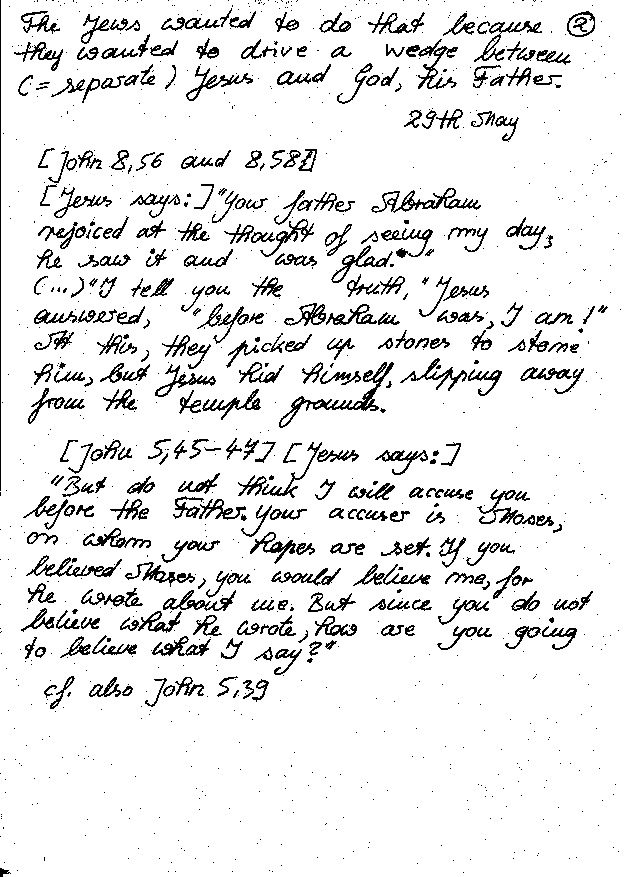 The Jews wanted to do that because ②
they wanted to drive a wedge between
(= separate) Jesus and God, his Father.
29th May
[John 8,56 and 8,58]
[Jesus says:] "Your father Abraham
rejoiced at the thought of seeing my day,
he saw it and was glad."
(...) "I tell you the truth," Jesus
answered, "before Abraham was, I am!"
At this, they picked up stones to stone
him, but Jesus hid himself, slipping away
from the temple grounds.
[John 5,45-47] [Jesus says:]
"But do not think I will accuse you
before the Father. Your accuser is Moses,
on whom your hopes are set. If you
believed Moses, you would believe me, for
he wrote about me. But since you do not
believe what he wrote, how are you going
to believe what I say?"
cf. also John 5,39